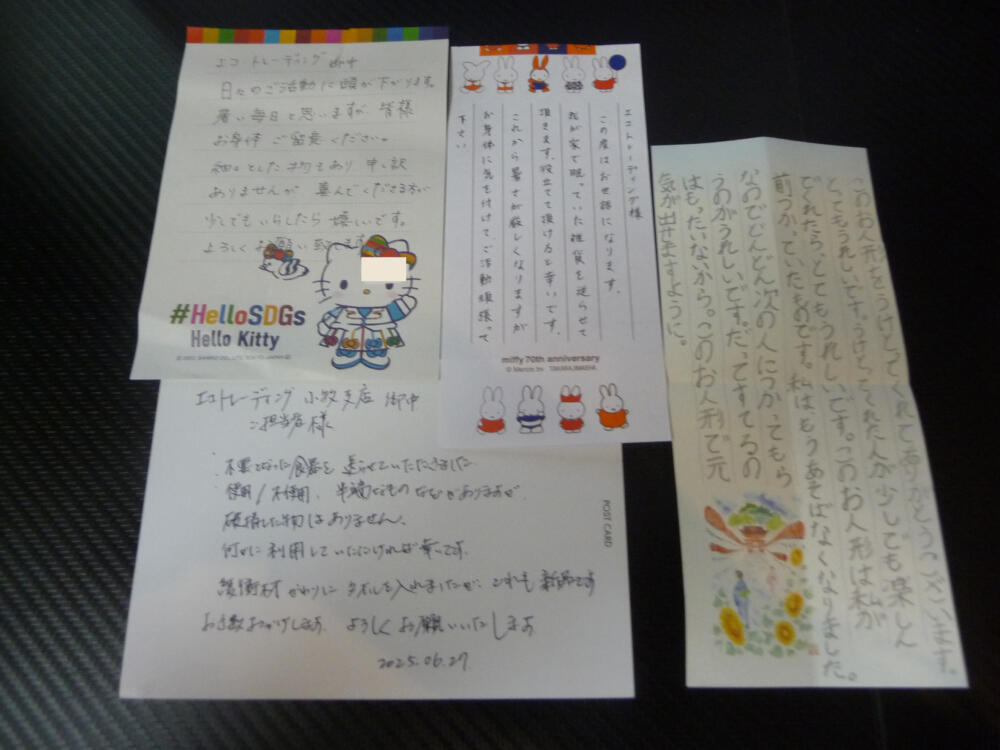 エコトレーディング 御中
日々のご活動に頭が下がります。
暑い毎日と思いますが、皆様
お身体 ご留意ください。
細々とした物もあり 申し訳
ありませんが 喜んでくださる方が
少しでもいらしたら 嬉しいです。
よろしく お願い致します
#HelloSDGs
Hello Kitty
エコトレーディング様
この度はお世話になります。
我が家で眠っていた雑貨を送らせて
頂きます。役立てて頂けると幸いです。
これから暑さが厳しくなりますが
お身体に気を付けて、ご活動頑張って
下さい
miffy 70th anniversary
エコトレーディング 小牧支店 御中
ご担当者様
不要となった食器を送らせていただきました
使用/不使用、半端なものなどがありますが、
破損した物はありません。
何かに利用していただければ幸いです。
緩衝材がわりにタオルを入れましたが、これも新品です
お手数おかけします。よろしくお願いいたします
2025.06.27
POST CARD
このお人形をうけとってくれてありがとうございます。
とってもうれしいです。うけとってくれた人が少しでも楽しん
でくれたら、とてもうれしいです。このお人形は私が
前つかっていたものです。私はもうあそばなくなりました。
なのでどんどん次の人につかってもら
うのがうれしいです。だってすてるの
はもったいないから。このお人形で元
気が出せますように。